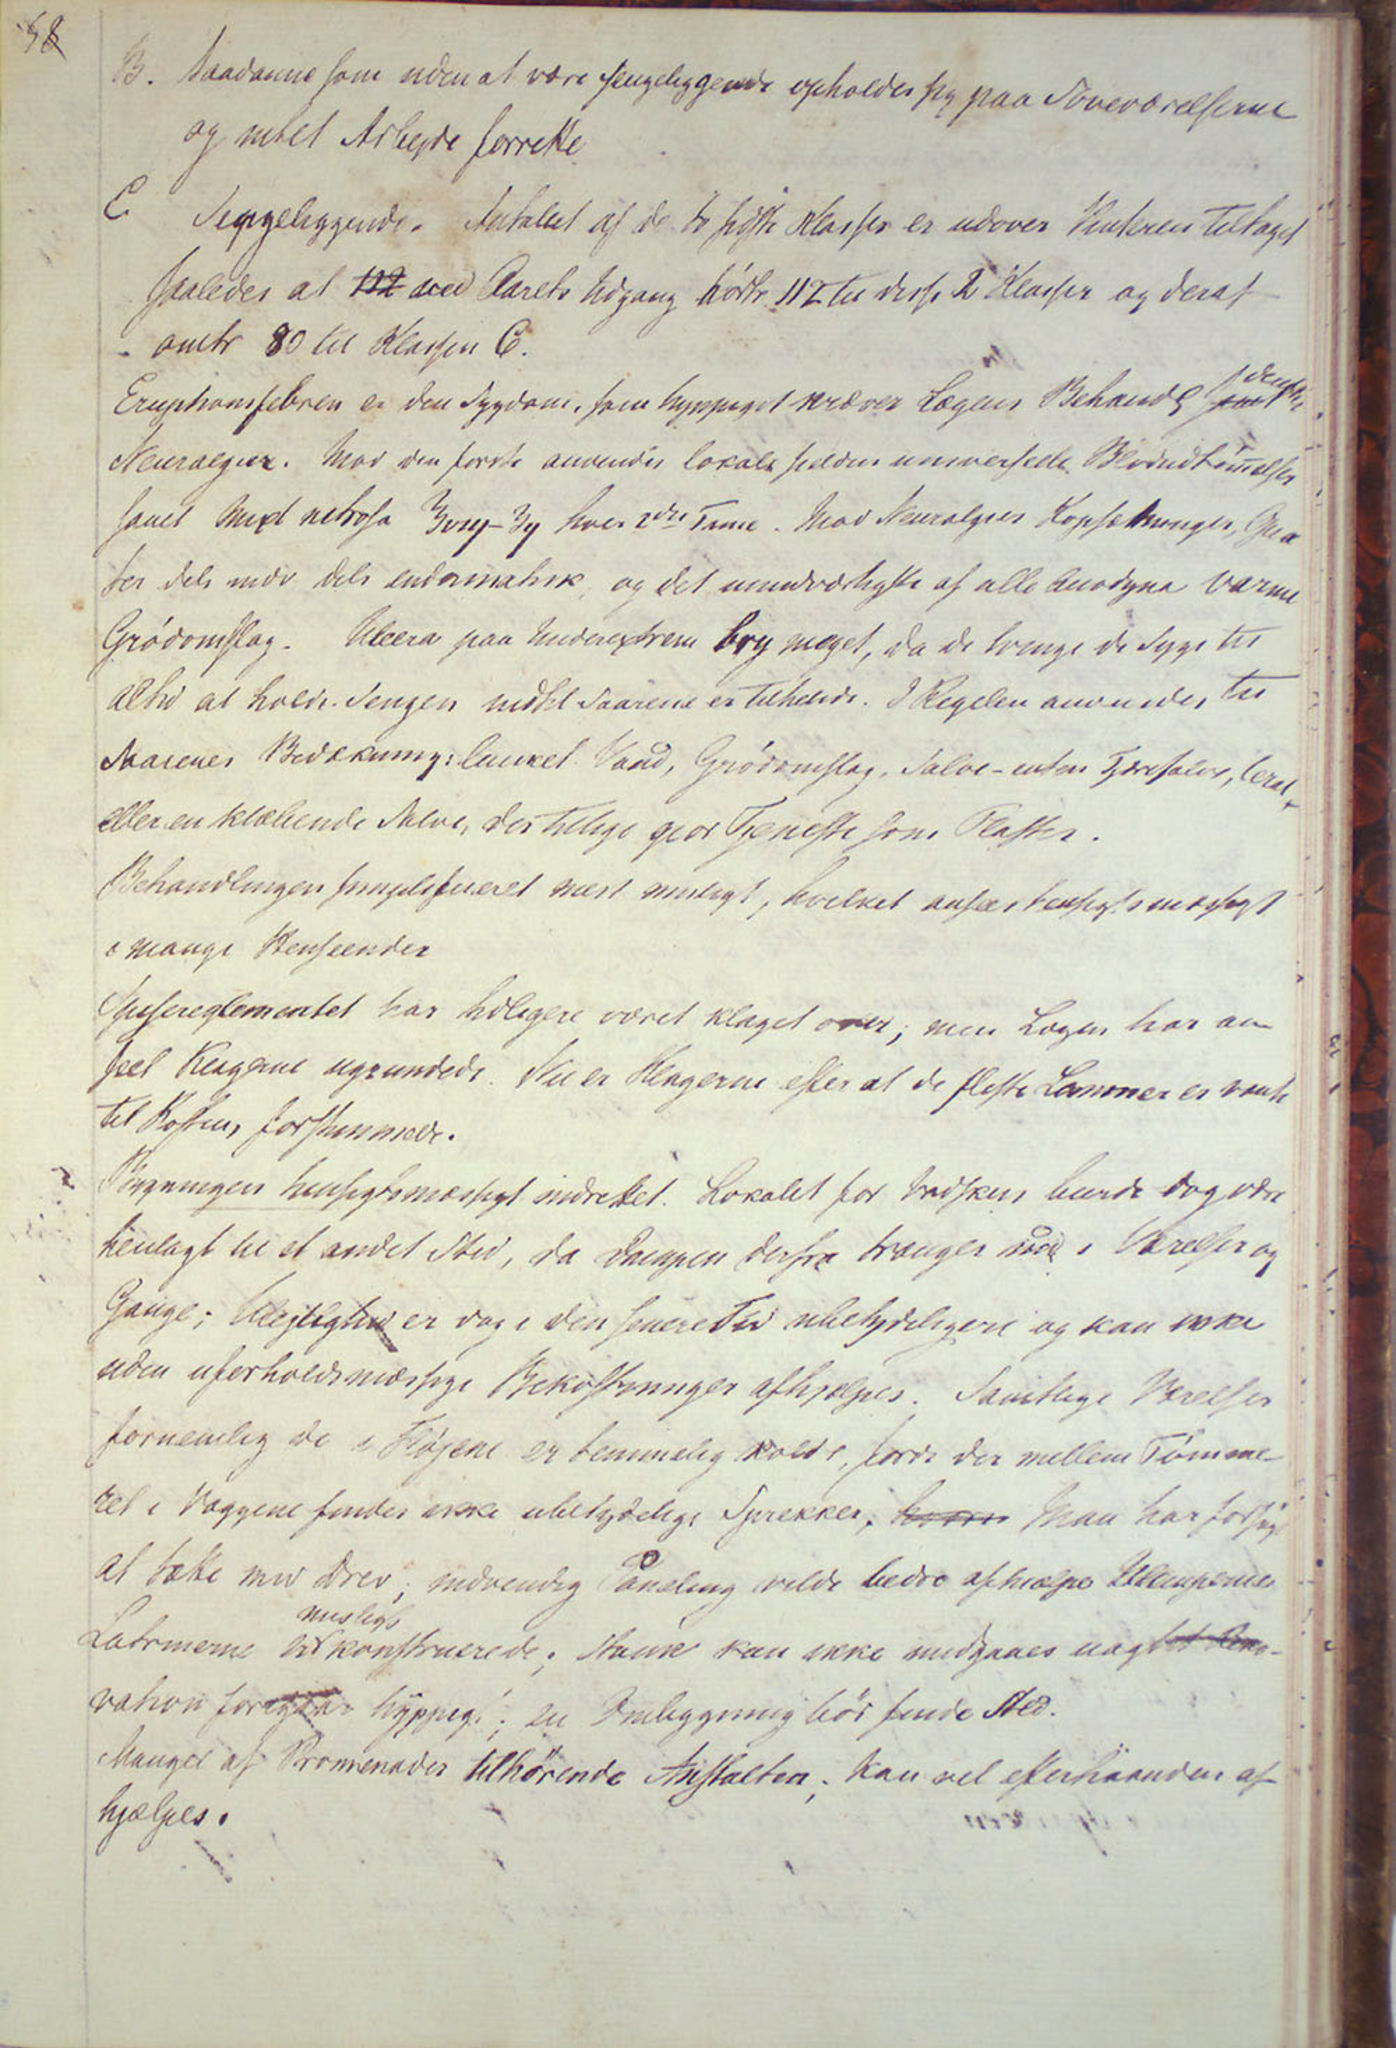 58
B. Saadanne som uden at være sengeliggende opholder sig paa Soveværelserne
og intet Arbejde forrette
C Sengeliggende. Antallet af de to sidste Klasser er udover Vinteren tiltaget
saaledes at 112 ved Aarets Udgang hörte 112 til disse 2 Klasser og deraf
omtr 80 til Klassen C.
Eruptionsfebren er den Sygdom, som hyppigst kræver Lægens Behandl
Neuralgier. Mod den første anvendes lokale sjelden universelle Blodudtömmelser
samt Mixt nitrosa hver 2den Time. Mod Neuralgier Kopsætninger,
dels indv dels endermatisk, og det uundværligste af alle Anodyna varme
Grödomslag. Ulcera paa Underextrem bry meget, da de tvinge de Syge til
altid at holde Sengen indtil Saarene er tilhelede. I Regelen anvendes til
Saarenes Bedækning: lunket Vand, Grödomslag, Salve - enten Tjæresalve, Cerat
eller en klæbende Salve, der tillige gjör Tjeneste som Plaster.
Behandlingen simplificeret mest muligt, hvilket ansees hensigtsmæssigt
i mange Henseender
Spisereglementet har tidligere været klaget over; men Lægen har an
seet Klagerne ugrundede. Nu er Klagerne efter at de fleste Lemmer er vante
til Kosten, forstummede.
Bygningen hensigtsmæssigt indrettet. Lokalet for Vadsken burde dog være
henlagt til et andet Sted, da Dampen derfra trænger ind i Værelser og
Gange; Ulejligheden er dog i den senere Tid ubetydeligere og kan ikke
uden uforholdsmæssige Bekostninger afhjælpes. Samtlige Værelser
fornemlig de i Flöjene er temmelig kolde, fordi der mellem Tömme-
ret i Væggene findes ikke ubetydelige Sprekker, Man har forsögt
at tætte med Drev; indvendig Paneling vilde bedre afhjælpe Ulemperne
Latrinerne uheldigt konstruerede; Stank kan ikke undgaaes uagtet Reno-
vation foregaar hyppigt; en Ombygning bör finde Sted.
Mangel af Promenader tilhörende Anstalten, kan vel efterhaanden af
hjælpes.